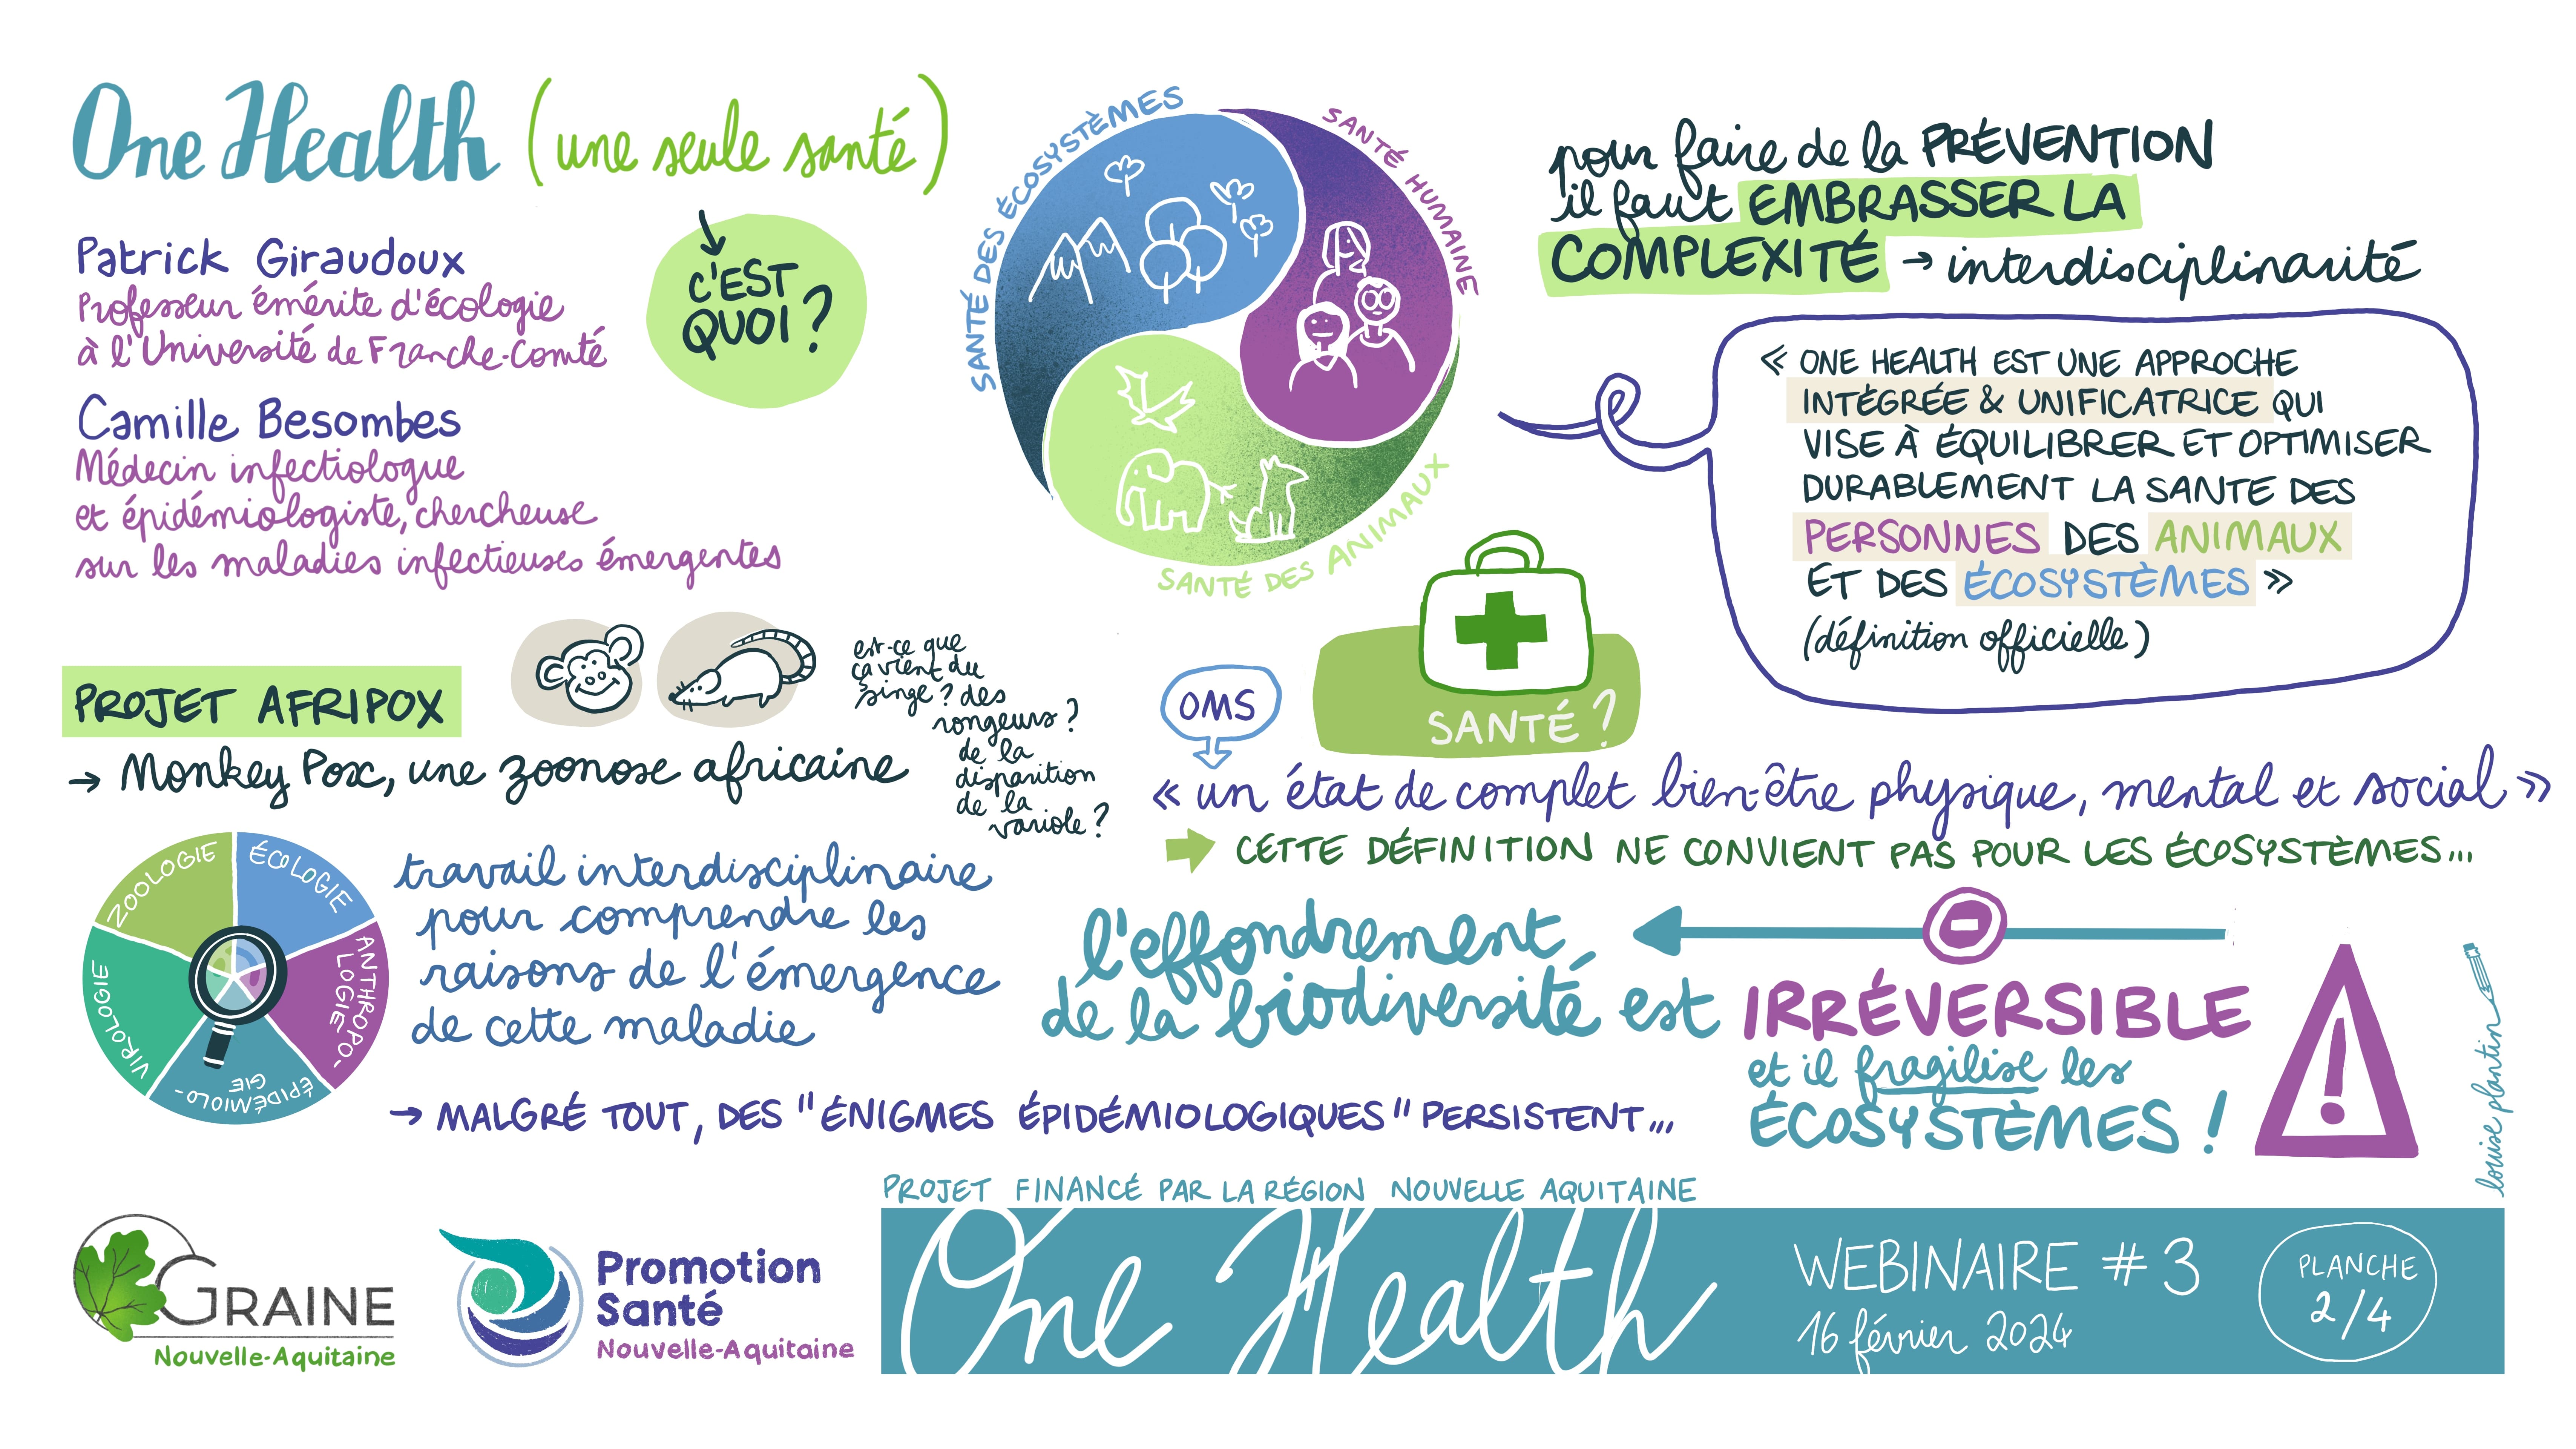 One Health (une seule santé)
C'EST
QUOI ?
Patrick Giraudoux
Professeur émérite d'écologie
à l'Université de Franche-Comté
Camille Besombes
Médecin infectiologue
et épidémiologiste, chercheuse
sur les maladies infectieuses émergentes
SANTÉ DES ÉCOSYSTÈMES
SANTÉ HUMAINE
SANTÉ DES ANIMAUX
pour faire de la PRÉVENTION
il faut EMBRASSER LA
COMPLEXITÉ → interdisciplinarité
« ONE HEALTH EST UNE APPROCHE
INTÉGRÉE & UNIFICATRICE QUI
VISE À ÉQUILIBRER ET OPTIMISER
DURABLEMENT LA SANTE DES
PERSONNES DES ANIMAUX
ET DES ÉCOSYSTÈMES »
(définition officielle)
PROJET AFRIPOX
→ Monkey Pox, une zoonose africaine
est-ce que
ça vient du
singe ? des
rongeurs ?
de la
disparition
de la
variole ?
ZOOLOGIE
ÉCOLOGIE
ANTHROPO-
LOGIE
ÉPIDÉMIOLO-
GIE
VIROLOGIE
travail interdisciplinaire
pour comprendre les
raisons de l'émergence
de cette maladie
→ MALGRÉ TOUT, DES "ÉNIGMES ÉPIDÉMIOLOGIQUES" PERSISTENT...
OMS
SANTÉ ?
« un état de complet bien-être physique, mental et social »
CETTE DÉFINITION NE CONVIENT PAS POUR LES ÉCOSYSTÈMES...
l'effondrement
de la biodiversité est IRRÉVERSIBLE
et il fragilise les
ÉCOSYSTÈMES !
!
louise plantin
GRAINE
Nouvelle-Aquitaine
Promotion
Santé
Nouvelle-Aquitaine
PROJET FINANCÉ PAR LA RÉGION NOUVELLE AQUITAINE
One Health
WEBINAIRE #3
16 février 2024
PLANCHE
2/4